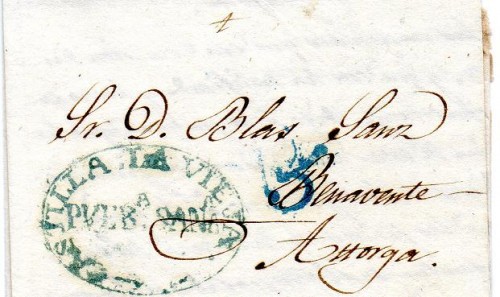 Sr. D. Blas Sanz
Benavente
Astorga.
CASTILLA LA VIEJA
PVEB.A SANA.
5